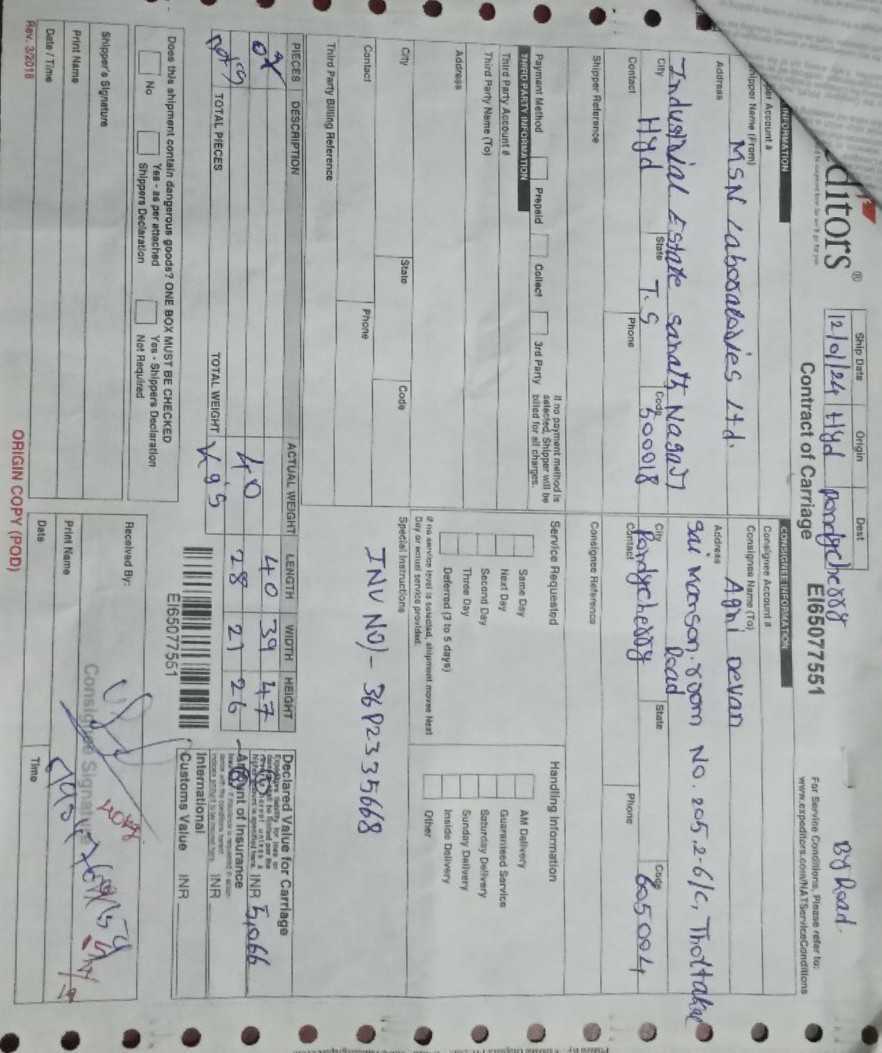 ditors®
Ship Date
Origin
Dest
12/01/24 Hyd pondycherry
Contract of Carriage
EI65077551
By Road.
For Service Conditions, Please refer to:
www.expeditors.com/NATServiceConditions
INFORMATION
per Account #
hipper Name (From)
MSN Laboratories Ltd.
Address
Industrial Estate sanath Nagar
City
State
Code
Hyd
T.S
500018
Contact
Phone
Shipper Reference
Payment Method
Prepaid
Collect
3rd Party
If no payment method is
selected, Shipper will be
billed for all charges.
THIRD PARTY INFORMATION
Third Party Account #
Third Party Name (To)
Address
City
State
Code
Contact
Phone
Third Party Billing Reference
CONSIGNEE INFORMATION
Consignee Account #
Consignee Name (To)
Agni Devan
Address
Sai Manson, room No. 205, 2-6/C, Thottakar
Road
City
State
Code
Pondycherry
605004
Contact
Phone
Consignee Reference
Service Requested
Same Day
Next Day
Second Day
Three Day
Deferred (3 to 5 days)
If no service level is selected, shipment moves Next
Day or actual service provided.
Handling Information
AM Delivery
Guaranteed Service
Saturday Delivery
Sunday Delivery
Inside Delivery
Other
Special Instructions
INV NO/- 36P2335668
PIECES
DESCRIPTION
ACTUAL WEIGHT
LENGTH
WIDTH
HEIGHT
02
40 39 47
40
28 21 26
TOTAL PIECES
TOTAL WEIGHT
Kgs
Declared Value for Carriage
INR 5,066
Amount of Insurance
INR
International
Customs Value
INR
EI65077551
Does this shipment contain dangerous goods? ONE BOX MUST BE CHECKED
No
Yes - as per attached
Shippers Declaration
Yes - Shippers Declaration
Not Required
Shipper's Signature
Print Name
Date / Time
Received By:
Consignee Signature
40kg
Print Name
Date
Time
Rev. 3/2018
ORIGIN COPY (POD)